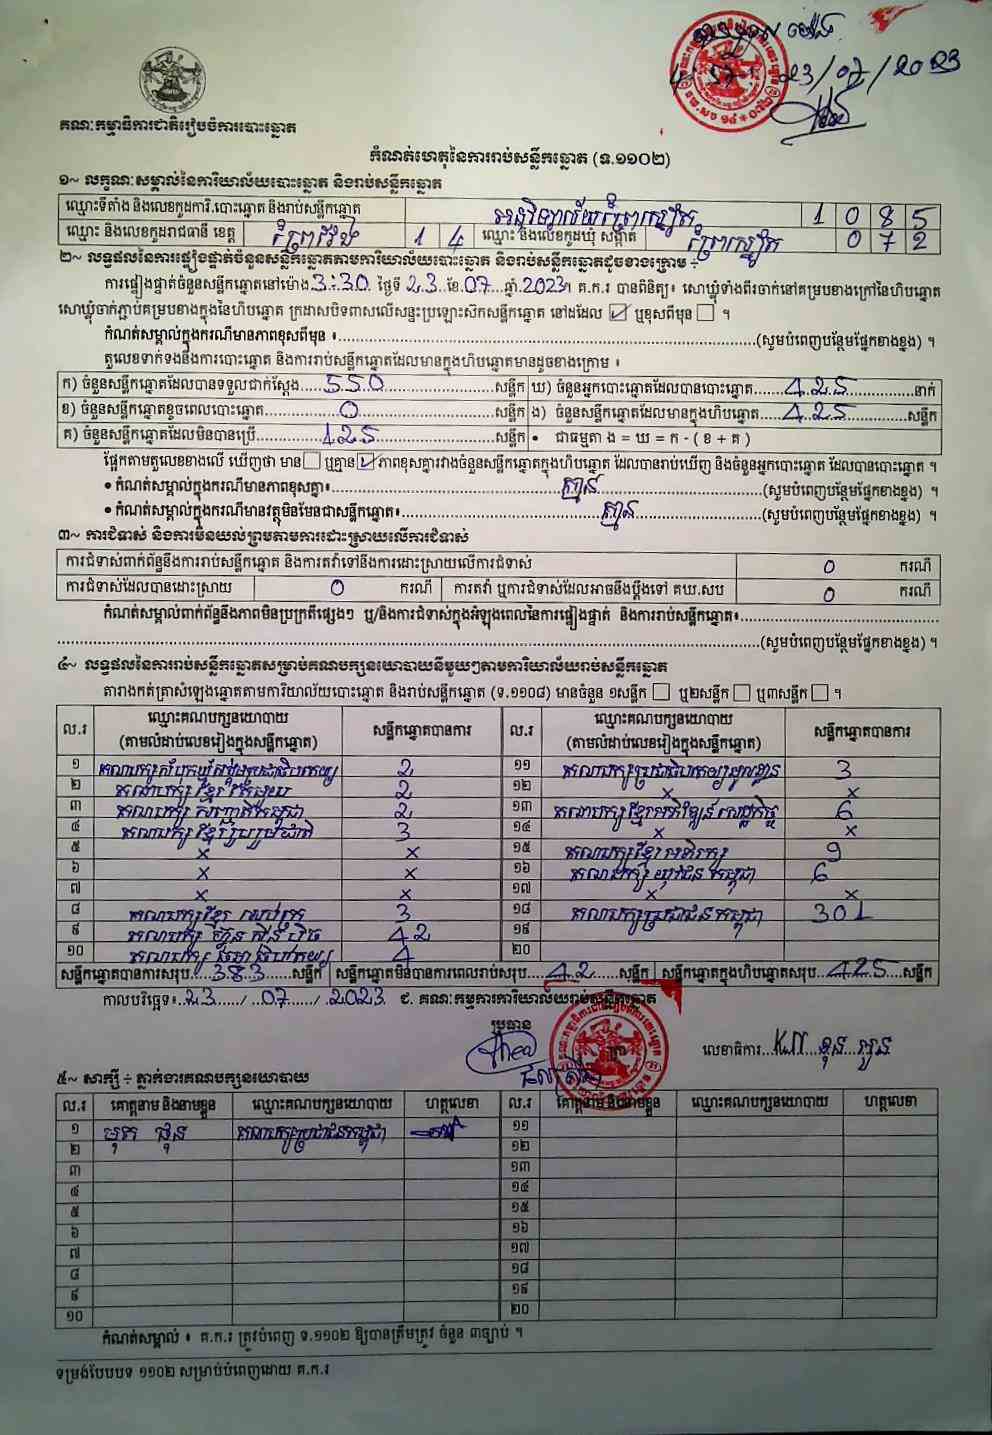 23/07/2023
គណៈកម្មាធិការជាតិរៀបចំការបោះឆ្នោត
កំណត់ហេតុនៃការរាប់សន្លឹកឆ្នោត (ទ.១១០២)
១~ លក្ខណៈសម្គាល់នៃការិយាល័យបោះឆ្នោត និងរាប់សន្លឹកឆ្នោត
ឈ្មោះទីតាំង និងលេខកូដការិ.បោះឆ្នោត និងរាប់សន្លឹកឆ្នោត អនុវិទ្យាល័យព្រៃស្នៀត 1 0 8 5
ឈ្មោះ និងលេខកូដរាជធានី ខេត្ត ព្រៃវែង 1 4 ឈ្មោះ និងលេខកូដឃុំ សង្កាត់ ព្រៃស្នៀត 0 7 2
២~ លទ្ធផលនៃការផ្ទៀងផ្ទាត់ចំនួនសន្លឹកឆ្នោតតាមការិយាល័យបោះឆ្នោត និងរាប់សន្លឹកឆ្នោតដូចខាងក្រោម ÷
ការផ្ទៀងផ្ទាត់ចំនួនសន្លឹកឆ្នោតនៅម៉ោង 3:30 ថ្ងៃទី 23 ខែ 07 ឆ្នាំ 2023។ គ.ក.រ បានពិនិត្យ៖ សោឃ្លុំទាំងពីរចាក់នៅគម្របខាងក្រៅនៃហិបឆ្នោត
សោឃ្លុំចាក់ភ្ជាប់គម្របខាងក្នុងនៃហិបឆ្នោត ក្រដាសបិទពាសលើសន្ទះប្រឡោះស៊កសន្លឹកឆ្នោត នៅដដែល ☑ ឬខុសពីមុន ☐ ។
កំណត់សម្គាល់ក្នុងករណីមានភាពខុសពីមុន ៖ (សូមបំពេញបន្ថែមផ្នែកខាងខ្នង) ។
តួលេខទាក់ទងនឹងការបោះឆ្នោត និងការរាប់សន្លឹកឆ្នោតដែលមានក្នុងហិបឆ្នោតមានដូចខាងក្រោម ៖
ក) ចំនួនសន្លឹកឆ្នោតដែលបានទទួលជាក់ស្តែង 550 សន្លឹក ឃ) ចំនួនអ្នកបោះឆ្នោតដែលបានបោះឆ្នោត 425 នាក់
ខ) ចំនួនសន្លឹកឆ្នោតខូចពេលបោះឆ្នោត 0 សន្លឹក ង) ចំនួនសន្លឹកឆ្នោតដែលមានក្នុងហិបឆ្នោត 425 សន្លឹក
គ) ចំនួនសន្លឹកឆ្នោតដែលមិនបានប្រើ 125 សន្លឹក • ជាធម្មតា ង = ឃ = ក - ( ខ + គ )
ផ្អែកតាមតួលេខខាងលើ ឃើញថា មាន ☐ ឬគ្មាន ☑ ភាពខុសគ្នារវាងចំនួនសន្លឹកឆ្នោតក្នុងហិបឆ្នោត ដែលបានរាប់ឃើញ និងចំនួនអ្នកបោះឆ្នោត ដែលបានបោះឆ្នោត ។
• កំណត់សម្គាល់ក្នុងករណីមានភាពខុសគ្នា៖ គ្មាន (សូមបំពេញបន្ថែមផ្នែកខាងខ្នង) ។
• កំណត់សម្គាល់ក្នុងករណីមានវត្ថុមិនមែនជាសន្លឹកឆ្នោត៖ គ្មាន (សូមបំពេញបន្ថែមផ្នែកខាងខ្នង) ។
៣~ ការជំទាស់ និងការមិនយល់ព្រមតាមការដោះស្រាយលើការជំទាស់
ការជំទាស់ពាក់ព័ន្ធនឹងការរាប់សន្លឹកឆ្នោត និងការតវ៉ាទៅនឹងការដោះស្រាយលើការជំទាស់ 0 ករណី
ការជំទាស់ដែលបានដោះស្រាយ 0 ករណី ការតវ៉ា ឬការជំទាស់ដែលអាចនឹងប្តឹងទៅ គឃ.សប 0 ករណី
កំណត់សម្គាល់ពាក់ព័ន្ធនឹងភាពមិនប្រក្រតីផ្សេងៗ ឬ/និងការជំទាស់ក្នុងអំឡុងពេលនៃការផ្ទៀងផ្ទាត់ និងការរាប់សន្លឹកឆ្នោត៖
(សូមបំពេញបន្ថែមផ្នែកខាងខ្នង) ។
៤~ លទ្ធផលនៃការរាប់សន្លឹកឆ្នោតសម្រាប់គណបក្សនយោបាយនីមួយៗតាមការិយាល័យរាប់សន្លឹកឆ្នោត
តារាងកត់ត្រាសំឡេងឆ្នោតតាមការិយាល័យបោះឆ្នោត និងរាប់សន្លឹកឆ្នោត (ទ.១១០៨) មានចំនួន ១សន្លឹក ☐ ឬ២សន្លឹក ☐ ឬ៣សន្លឹក ☐ ។
ល.រ ឈ្មោះគណបក្សនយោបាយ (តាមលំដាប់លេខរៀងក្នុងសន្លឹកឆ្នោត) សន្លឹកឆ្នោតបានការ ល.រ ឈ្មោះគណបក្សនយោបាយ (តាមលំដាប់លេខរៀងក្នុងសន្លឹកឆ្នោត) សន្លឹកឆ្នោតបានការ
១ គណបក្សសំបុកឃ្មុំសង្គមប្រជាធិបតេយ្យ 2 ១១ គណបក្សប្រជាធិបតេយ្យមូលដ្ឋាន 3
២ គណបក្ស ខ្មែរតែមួយ 2 ១២ x x
៣ គណបក្ស សញ្ជាតិកម្ពុជា 2 ១៣ គណបក្សខ្មែរអភិវឌ្ឍន៍ សេដ្ឋកិច្ច 6
៤ គណបក្ស ខ្មែររួបរួមជាតិ 3 ១៤ x x
៥ x x ១៥ គណបក្សខ្មែរអភិរក្ស 9
៦ x x ១៦ គណបក្ស យុវជន កម្ពុជា 6
៧ x x ១៧ x x
៨ គណបក្សខ្មែរ ឈប់ក្រ 3 ១៨ គណបក្សប្រជាជនកម្ពុជា 301
៩ គណបក្ស ហ៊្វុនស៊ិនប៉ិច 42 ១៩
១០ គណបក្ស ធម្មាធិបតេយ្យ 4 ២០
សន្លឹកឆ្នោតបានការសរុប 383 សន្លឹក សន្លឹកឆ្នោតមិនបានការពេលរាប់សរុប 42 សន្លឹក សន្លឹកឆ្នោតក្នុងហិបឆ្នោតសរុប 425 សន្លឹក
កាលបរិច្ឆេទ៖ 23 / 07 / 2023 ជ. គណៈកម្មការការិយាល័យរាប់សន្លឹកឆ្នោត
ប្រធាន
លេខាធិការ
៥~ សាក្សី ÷ ភ្នាក់ងារគណបក្សនយោបាយ
ល.រ គោត្តនាម និងនាមខ្លួន ឈ្មោះគណបក្សនយោបាយ ហត្ថលេខា ល.រ គោត្តនាម និងនាមខ្លួន ឈ្មោះគណបក្សនយោបាយ ហត្ថលេខា
១ គណបក្សប្រជាជនកម្ពុជា ១១
២ ១២
៣ ១៣
៤ ១៤
៥ ១៥
៦ ១៦
៧ ១៧
៨ ១៨
៩ ១៩
១០ ២០
កំណត់សម្គាល់ ៖ គ.ក.រ ត្រូវបំពេញ ទ.១១០២ ឱ្យបានត្រឹមត្រូវ ចំនួន ៣ច្បាប់ ។
ទម្រង់បែបបទ ១១០២ សម្រាប់បំពេញដោយ គ.ក.រ